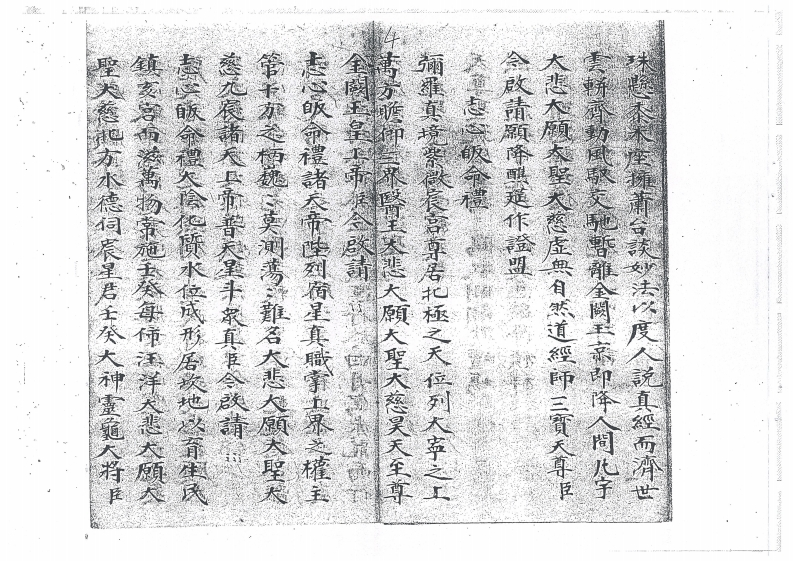 4
珠懸黍米座擁蕭台談妙法以度人說真經而濟世
雲軿齊動風馭交馳暫離金闕玉京即降人間凡宇
大悲大願大聖大慈虛無自然道經師三寶天尊臣
仝啟請願降醮筵作證盟
志心皈命禮
彌羅真境紫微宸宮尊居北極之天位列大宰之上
萬方瞻仰三界醫王大悲大願大聖大慈昊天至尊
金闕玉皇上帝仝啟請
志心皈命禮諸天帝陛列宿星真職掌上界之權主
管十方之柄巍〻莫測蕩〻難名大悲大願大聖大
慈九宸諸天上帝普天星斗眾真臣仝啟請
志心皈命禮太陰化質水位成形居坎地以育生民
鎮亥宮而滋萬物常施壬癸每佈汪洋大悲大願大
聖大慈北方水德伺辰星君壬癸大神靈龜大將臣